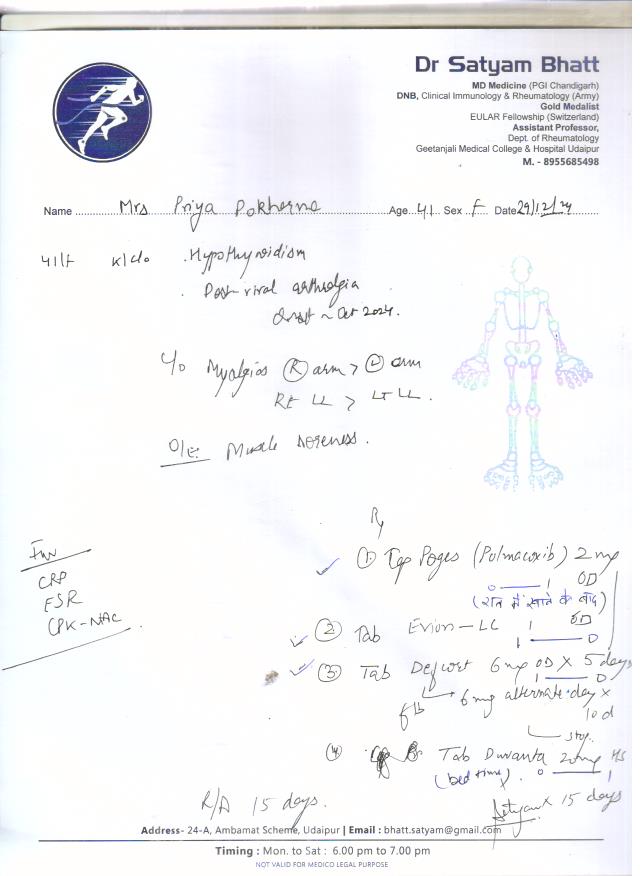 Dr Satyam Bhatt
MD Medicine (PGI Chandigarh)
DNB, Clinical Immunology & Rheumatology (Army)
Gold Medalist
EULAR Fellowship (Switzerland)
Assistant Professor,
Dept. of Rheumatology
Geetanjali Medical College & Hospital Udaipur
M. - 8955685498
Name Mrs Priya Pokherna Age 41 Sex F Date 29/12/24
41/F K/c/o Hypothyroidism
Post viral arthralgia
Onset ~ Oct 2024.
C/o Myalgias (R) arm > (L) arm
Rt LL > Lt LL.
O/E: Muscle soreness.
Rx
Inv
CRP
ESR
CPK-NAC
① Cap (Polmacoxib) 2 mg
0 — 1 OD
(रात में खाने के बाद)
② Tab Evion-LC 1 OD
1 — 0
③ Tab Defcort 6 mg OD X 5 days
1 — 0
6 mg alternate day x
10 d
stop.
④ Tab Duvanta 20mg HS
(bed time). 0 — 1
x 15 days
R/A 15 days.
Address- 24-A, Ambamat Scheme, Udaipur | Email : bhatt.satyam@gmail.com
Timing : Mon. to Sat : 6.00 pm to 7.00 pm
NOT VALID FOR MEDICO LEGAL PURPOSE